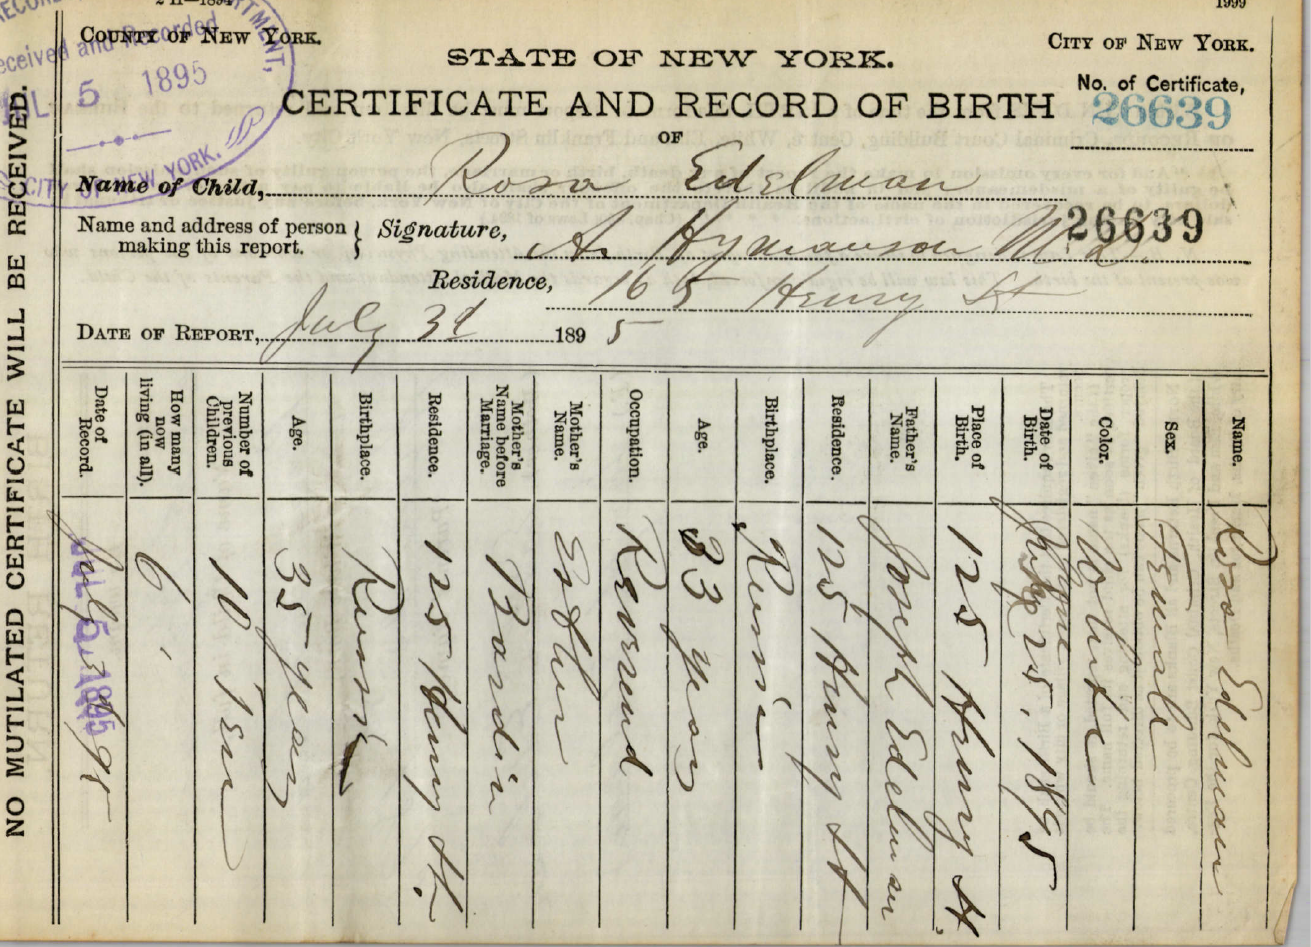 2 H—1894
1999
COUNTY OF NEW YORK.
CITY OF NEW YORK.
Received and Recorded
5 1895
CITY OF NEW YORK.
STATE OF NEW YORK.
No. of Certificate,
26639
CERTIFICATE AND RECORD OF BIRTH
OF
Name of Child, Rosa Edelman
26639
Name and address of person making this report. } Signature, A. Hymanson M.D.
Residence, 165 Henry St
DATE OF REPORT, July 3d 1895
NO MUTILATED CERTIFICATE WILL BE RECEIVED.
Name. Rosa Edelman
Sex. Female
Color. White
Date of Birth. June 25, 1895
Place of Birth. 125 Henry St.
Father's Name. Joseph Edelman
Residence. 125 Henry St
Birthplace. Russia
Age. 33 years
Occupation. Reverend
Mother's Name. Esther
Mother's Name before Marriage.
Residence. 125 Henry St.
Birthplace. Russia
Age. 35 years
Number of previous Children. 10 Ten
How many now living (in all). 6
Date of Record. July 3d 95
JUL 5 1895